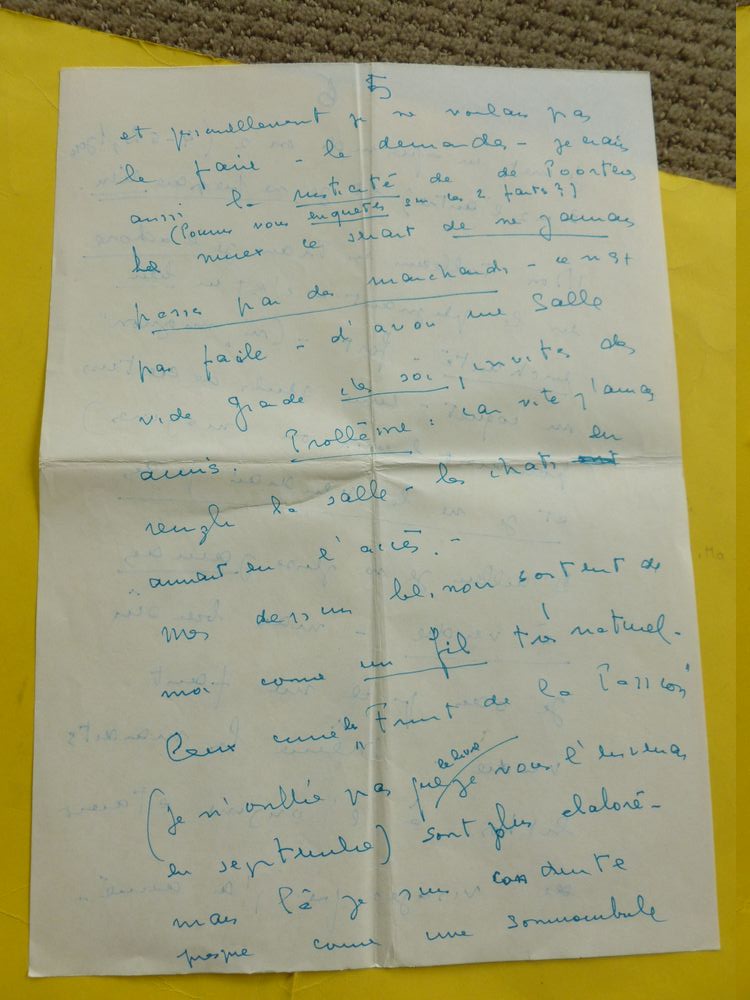 5
et personnellement je ne voulais pas
le faire - le demander - je crains
aussi la rusticité de de Poorters
(Pouvez vous enquêtes sur les 2 faits?)
Le mieux ce serait de ne jamais
passer par des marchands - ce n'est
pas facile - d'avoir une salle
vide grande chez soi, invites des
amis. Problème: car vite j'aurais
rempli la salle - les chats en
auraient eu l'accès. -
mes dessins bé, non sortent de
moi comme un fil très naturel.
Ceux "le Fruit de la Passion"
(je n'oublie pas que je vous l'enverrai
le livre
en septembre) sont plus élaborés -
mais là je suis
presque comme une somnambule